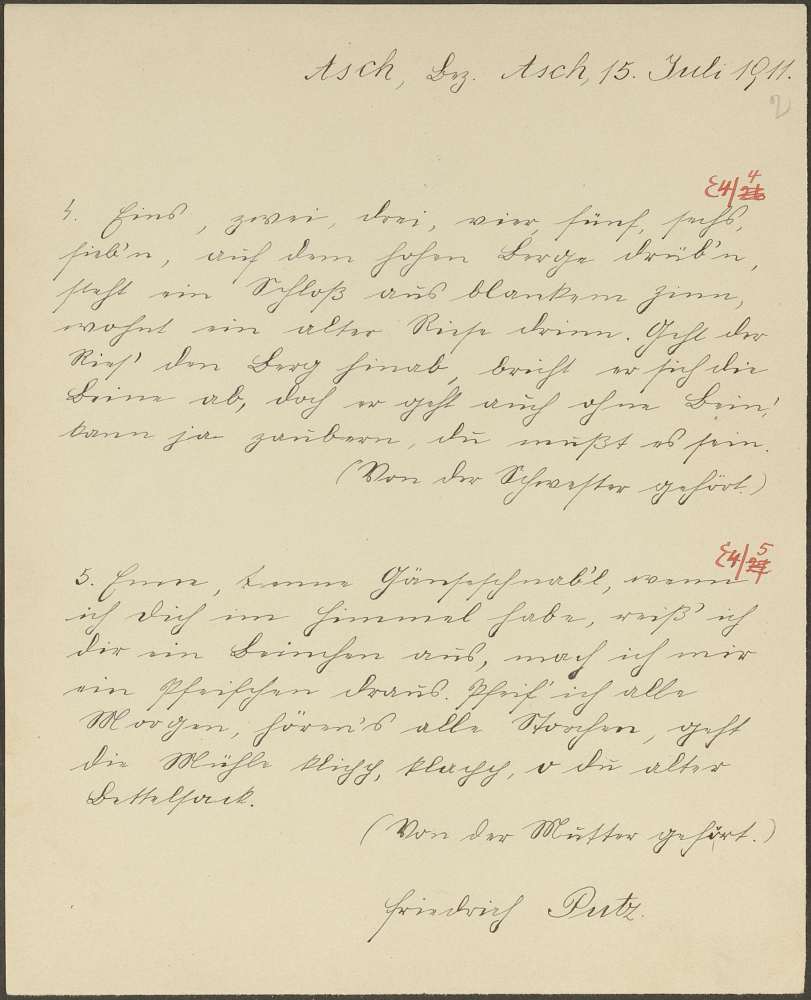 Asch, Bez. Asch, 15. Juli 1911.
2
E4/4
4. Eins, zwei, drei, vier, fünf, sechs,
sieb'n, auf dem hohen Berge drüb'n,
steht ein Schloß aus blankem Zinn,
wohnt ein alter Riese drinn. Geht der
Ries' den Berg hinab, bricht er sich die
Beine ab, doch er geht auch ohne Bein',
kann ja zaubern, du mußt es sein.
(Von der Schwester gehört.)
E4/5
5. Henne, Gänseschnab'l, wenn
ich dich im Himmel habe, reiß' ich
dir ein Beinchen aus, mach ich mir
ein Pfeifchen draus. Pfeif' ich alle
Morgen, hören's alle Storchen, geht
die Mühle klipp, klapp, o du alter
Bettelsack.
(Von der Mutter gehört.)
Friedrich Putz.